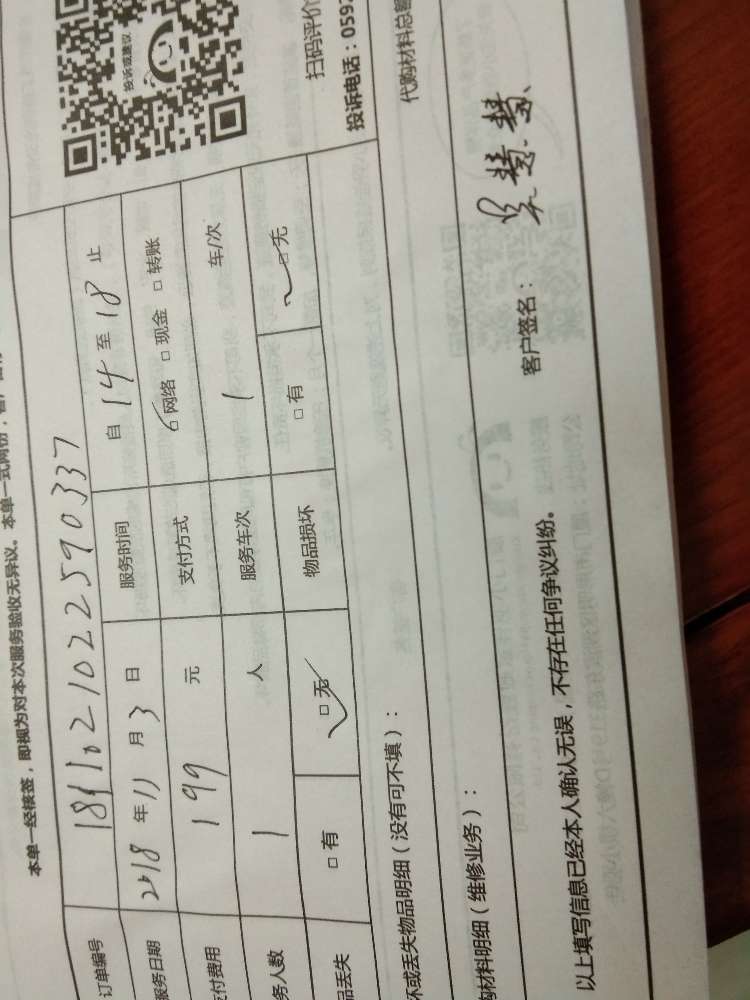 本单一经接签，即视为对本次服务验收无异议。本单一式两份，
投诉或建议
扫码评价
投诉电话：059
订单编号 1811021022590337
服务日期 2018 年 11 月 3 日 服务时间 自 14 至 18 止
付费用 199 元 支付方式 □网络 □现金 □转账
务人数 1 人 服务车次 1 车/次
品丢失 □有 □无 物品损坏 □有 □无
坏或丢失物品明细（没有可不填）：
代购材料总
购材料明细（维修业务）：
客户签名：
以上填写信息已经本人确认无误，不存在任何争议纠纷。